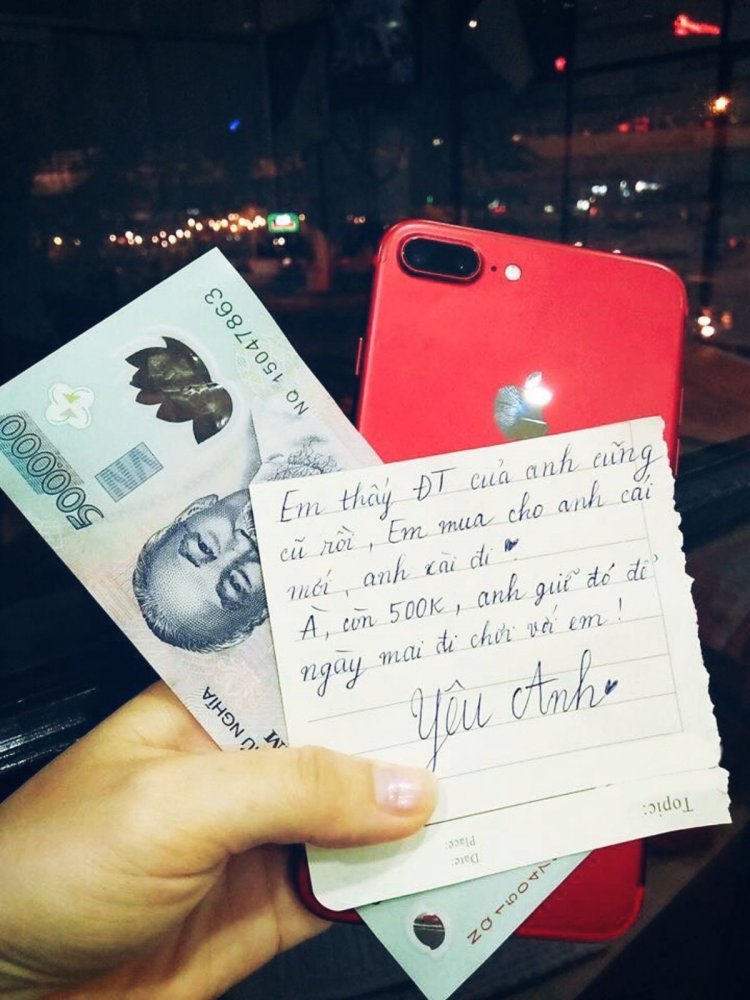 NQ 15047863
500000
Em thấy ĐT của anh cũng
cũ rồi, Em mua cho anh cái
mới, anh xài đi ♥
À, còn 500K, anh giữ đó để
ngày mai đi chơi với em!
Yêu Anh ♥
NGHĨA
Topic:
Date:
Place: